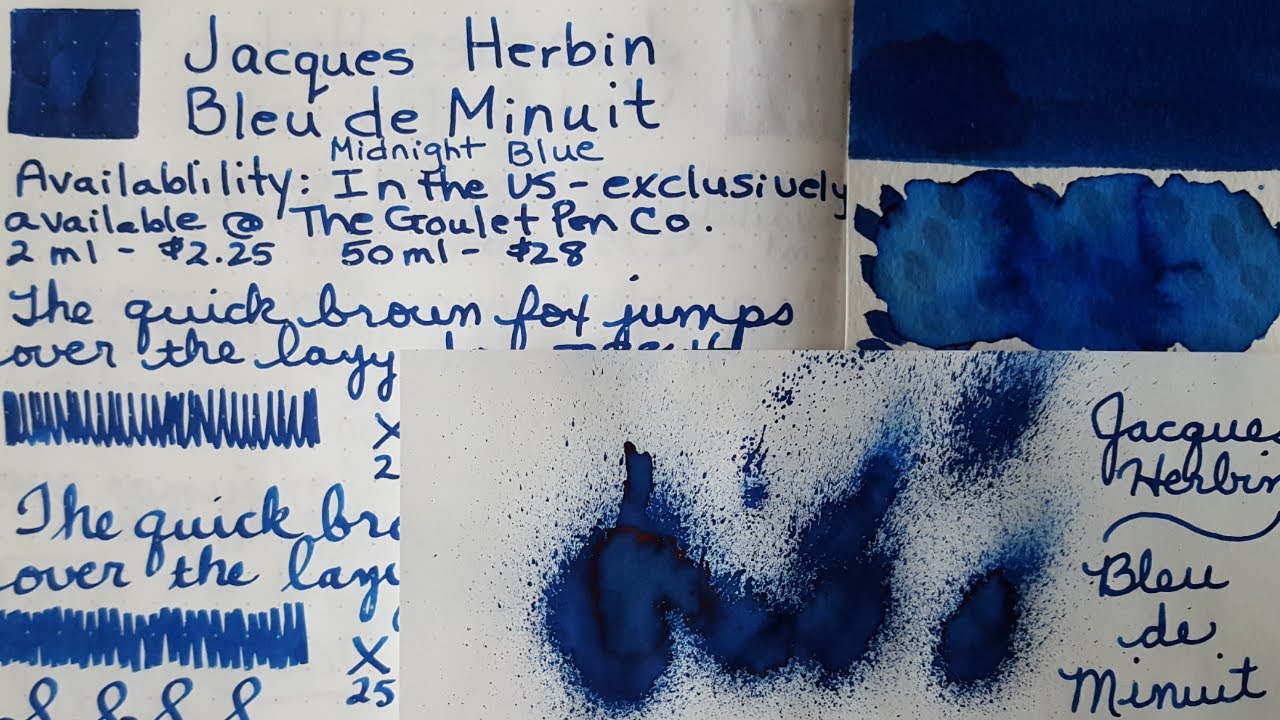 Jacques Herbin
Bleu de Minuit
Midnight Blue
Availablility: In the US - exclusively
available @ The Goulet Pen Co.
2 ml - $2.25 50 ml - $28
The quick brown fox jumps
over the lazy
X
2
The quick bro
over the lazy
X
25
Jacques
Herbin
Bleu
de
Minuit